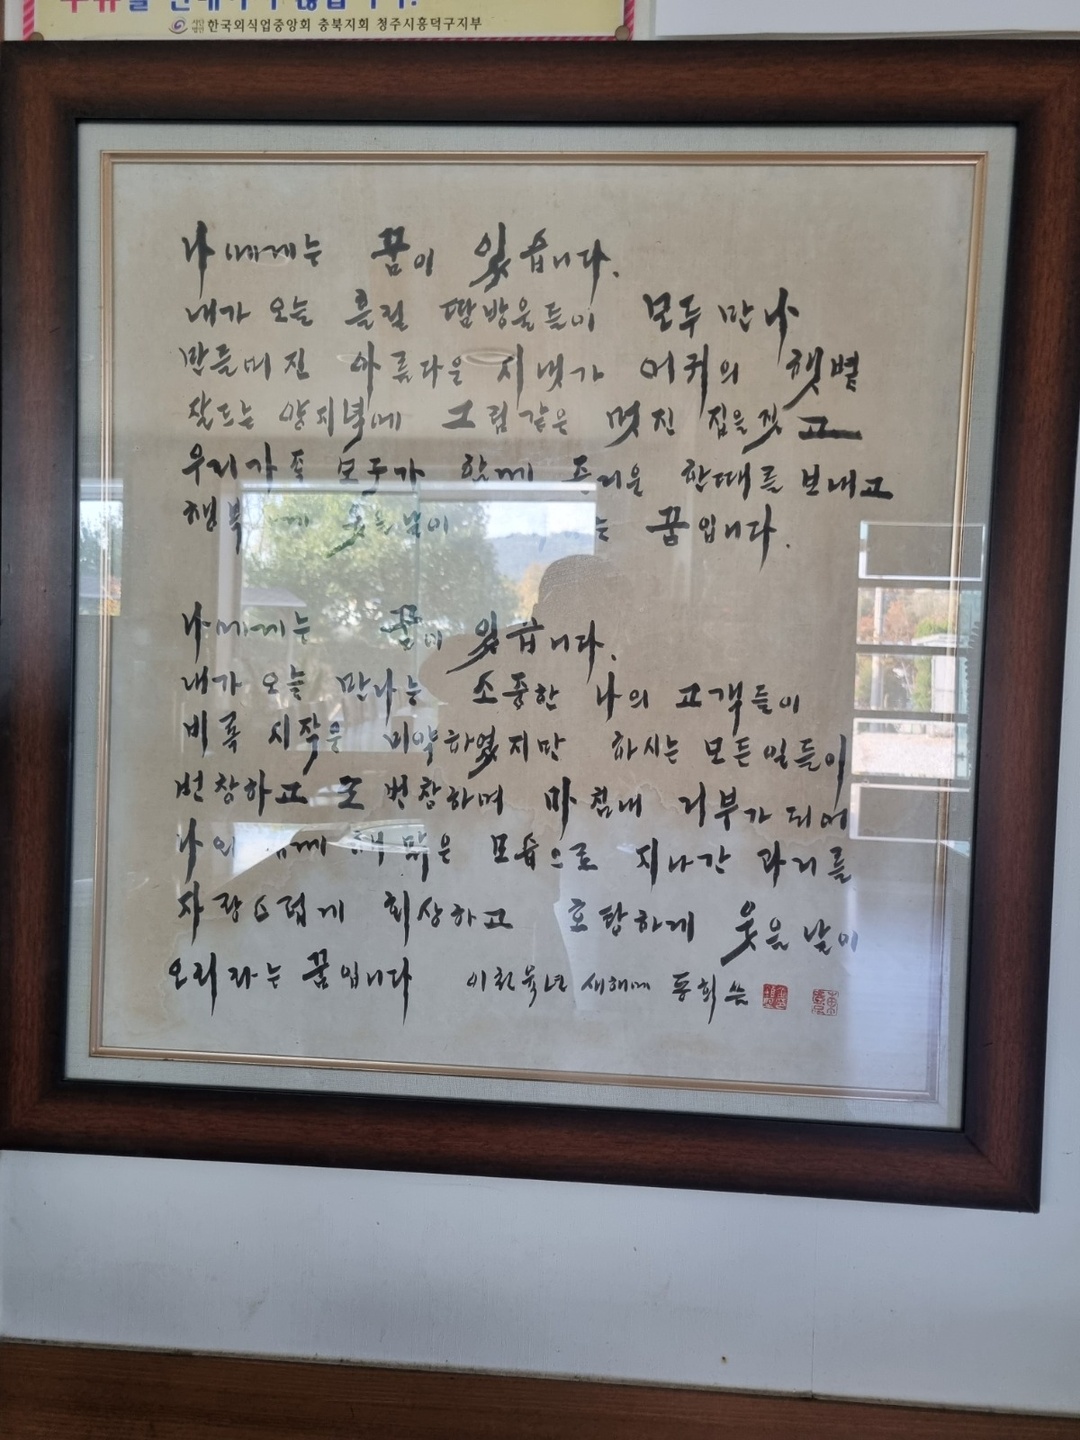 한국외식업중앙회 충북지회 청주시흥덕구지부
나에게는 꿈이 있습니다.
내가 오늘 흘릴 땀방울들이 모두 만나
만들어진 아름다운 시냇가 어귀의 햇볕
잘드는 양지녘에 그림같은 멋진 집을 짓고
우리가족 모두가 함께 즐거운 한때를 보내고
행복 웃을날이 는 꿈입니다.
나에게는 꿈이 있습니다.
내가 오늘 만나는 소중한 나의 고객들이
비록 시작은 미약하였지만 하시는 모든일들이
번창하고 또 번창하며 마침내 거부가 되어
나와 함께 해맑은 모습으로 지나간 과거를
자랑스럽게 회상하고 호탕하게 웃을 날이
오리라는 꿈입니다 이천육년 새해에 동희 씀